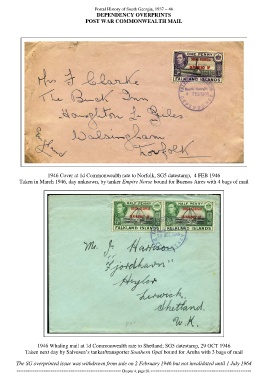 Postal History of South Georgia, 1937 – 46
DEPENDENCY OVERPRINTS
POST WAR COMMONWEALTH MAIL
ONE PENNY
FALKLAND ISLANDS
Mrs F Clarke
The Buck Inn
Houghton St Giles
Walsingham
Norfolk
1946 Cover at 1d Commonwealth rate to Norfolk, SG5 datestamp, 4 FEB 1946
Taken in March 1946, day unknown, by tanker Empire Norse bound for Buenos Aires with 4 bags of mail
HALF PENNY HALF PENNY
FALKLAND ISLANDS FALKLAND ISLANDS
Mr. J. Harrison
"Fjordhavn"
Lerwick,
Shetland.
U.K.
1946 Whaling mail at 1d Commonwealth rate to Shetland, SG5 datestamp, 29 OCT 1946
Taken next day by Salvesen's tanker/transporter Southern Opal bound for Aruba with 3 bags of mail
The SG overprinted issue was withdrawn from sale on 2 February 1946 but not invalidated until 1 July 1964